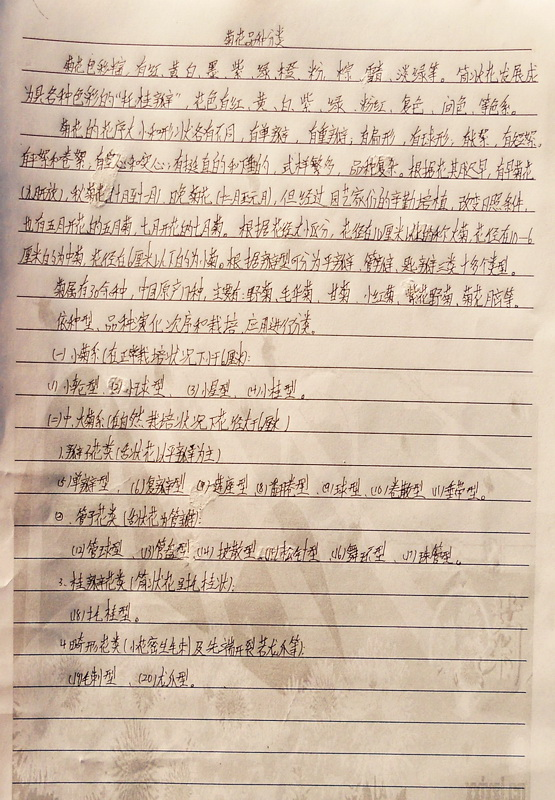 菊花品种分类
菊花色彩丰富,有红、黄、白、墨、紫、绿、橙、粉、棕、雪青、淡绿等。筒状花发展成
为具各种色彩的“托桂瓣”,花色有红、黄、白、紫、绿、粉红、复色、间色、等色系。
菊花的花序大小和形状各有不同,有单瓣,有重瓣;有扁形,有球形;有长絮,有短絮,
有平絮和卷絮;有空心和实心;有挺直的和下垂的,式样繁多,品种复杂。根据花期迟早,有早菊花
(9月开放),秋菊花(十月至十一月),晚菊花(十二月至元月),但经过园艺家们的辛勤培植,改变日照条件,
也有五月开花的五月菊,七月开花的七月菊。根据花径大小区分,花径在10厘米以上的称大菊,花径在10-6
厘米的为中菊,花径在6厘米以下的为小菊。根据瓣型可分为平瓣、管瓣、匙瓣三类十多个类型。
菊属有30余种,中国原产17种,主要有:野菊、毛华菊、甘菊、小红菊、紫花野菊、菊花脑等。
依种型、品种演化次序和栽培、应用进行分类。
(一)小菊系(在正常栽培状况下小于6厘米):
(1)小轮型 (2)小球型、 (3)小星型、 (4)小桂型。
(二)中、大菊系(在自然栽培状况下花径大于6厘米)
1.瓣子花类(舌状花以平瓣为主)
(5)单瓣型、 (6)复瓣型 (7)莲座型 (8)翻卷型、(9)球型、(10)卷散型 (11)垂带型。
2、管子花类(舌状花为管瓣):
(12)管球型、 (13)管盘型、(14)披散型、(15)松针型、 (16)舞环型、 (17)珠管型。
3、桂瓣花类(筒状花呈托桂状):
(18)托桂型。
4.畸形花类(小花密生毛刺及先端开裂若龙爪等):
(19)毛刺型 、(20)龙爪型。